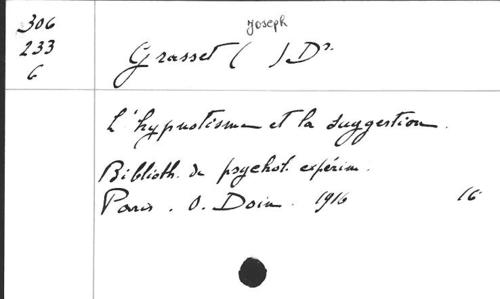 306
233
6
Joseph
Grasset ( ) Dr.
L'hypnotisme et la suggestion.
Biblioth. de psychol. expérim.
Paris. O. Doin. 1916 16